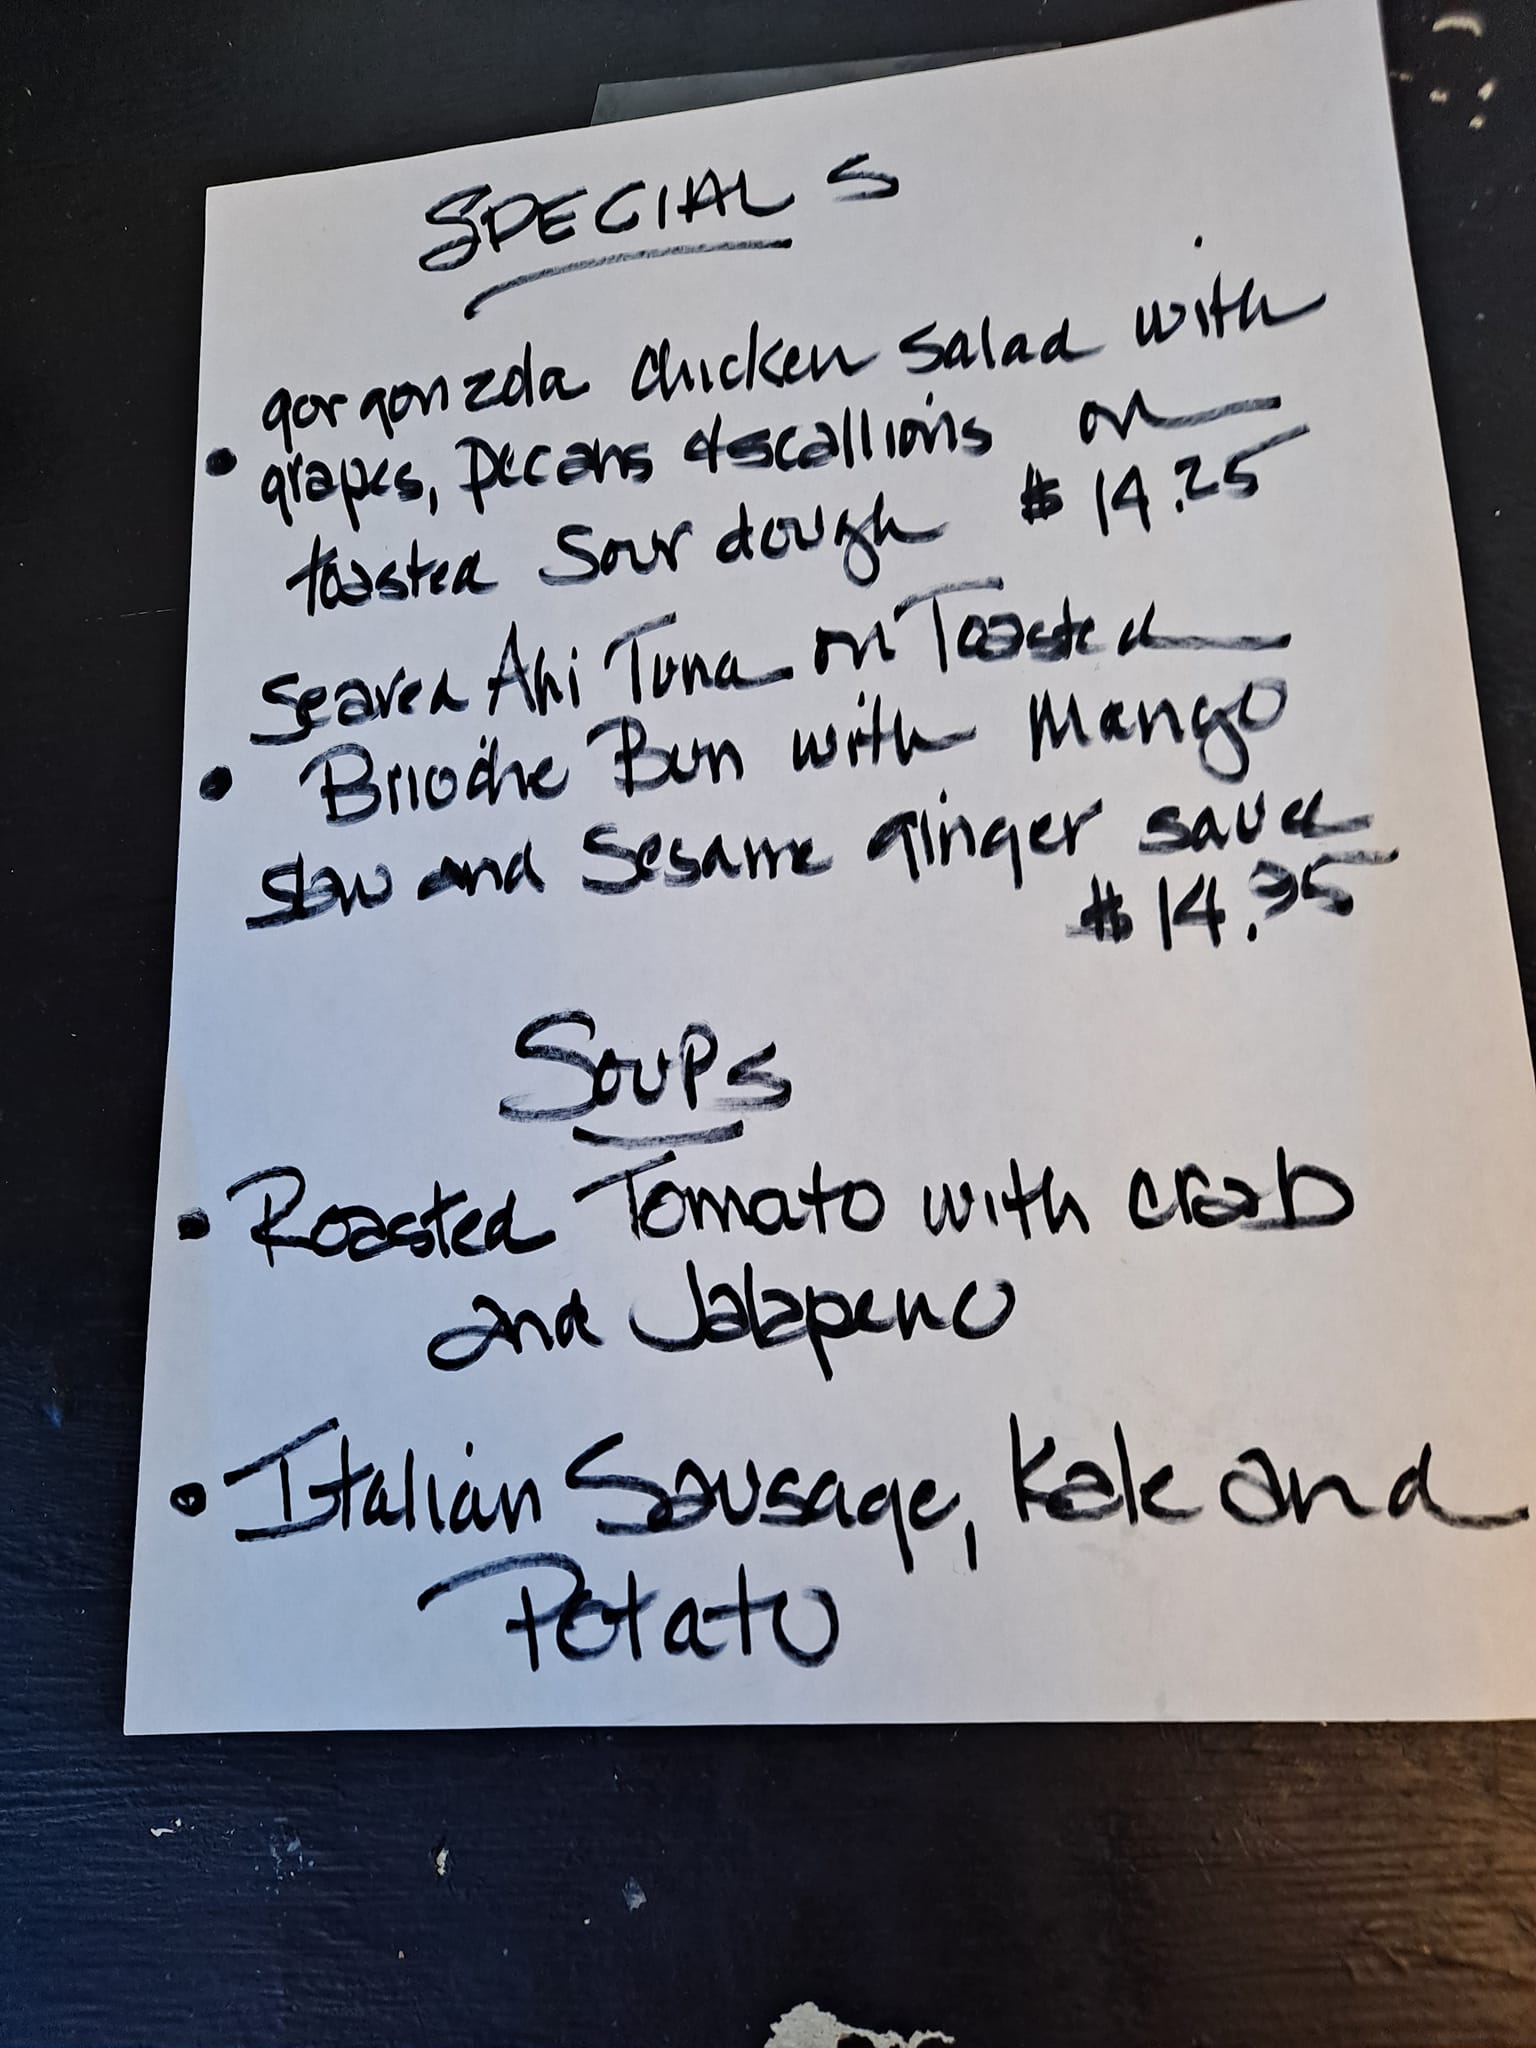 SPECIALS
gorgonzola chicken salad with
• grapes, pecans & scallions on
toasted Sour dough $14.25
Seared Ahi Tuna on Toasted
• Brioche Bun with Mango
slaw and Sesame ginger sauce
$14.95
Soups
• Roasted Tomato with crab
and Jalapeno
• Italian Sausage, Kale and
Potato